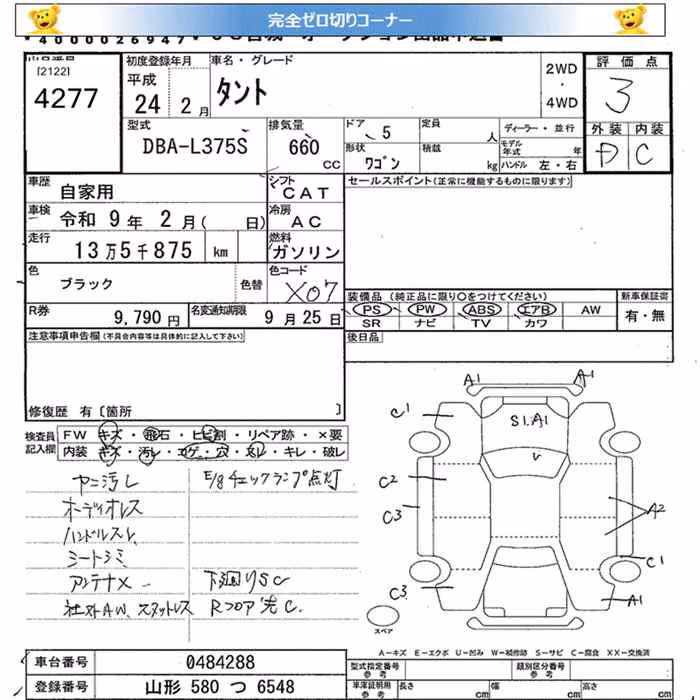 完全ゼロ切りコーナー
[2122]
4277
初度登録年月
平成
24 2月
車名・グレード
タント
2WD
・
4WD
評価点
3
型式
DBA-L375S
排気量
660
CC
ドア
5
定員
人
形状
ワゴン
積載
kg
ディーラー・並行
モデル年式
年
ハンドル 左・右
外装 内装
D C
車歴
自家用
シフト
CAT
車検
令和 9年 2月( 日)
冷房
AC
走行
13万5千875 km
燃料
ガソリン
色
ブラック
色替
色コード
X07
R券
9,790円
名変通知期限
9月25日
セールスポイント(正常に機能するものに限ります)
装備品(純正品に限り○をつけてください)
PS PW ABS エアB AW
SR ナビ TV カワ
新車保証書
有・無
後日品
注意事項申告欄(不具合内容等は具体的に記入して下さい)
修復歴 有〔箇所 〕
検査員
記入欄
FW キズ・飛石・ヒビ割・リペア跡・×要
内装 キズ・汚レ・コゲ・穴・スレ・キレ・破レ
ヤニ汚レ
E/gチェックランプ点灯
オーディオレス
ハンドルスレ
シートシミ
アンテナX
下廻りSC
社外AW、スタットレス
Rフロア先C.
A1 A1
C1
S1.A1
U
C2
C3
A2
C1
C3
A1
スペア
A-キズ E-エクボ U-凹み W-補修跡 S-サビ C-腐食 XX-交換済
車台番号
0484288
登録番号
山形 580 つ 6548
型式指定番号
参考
類別区分番号
参考
車庫証明用
参考
長さ cm
幅 cm
高さ cm